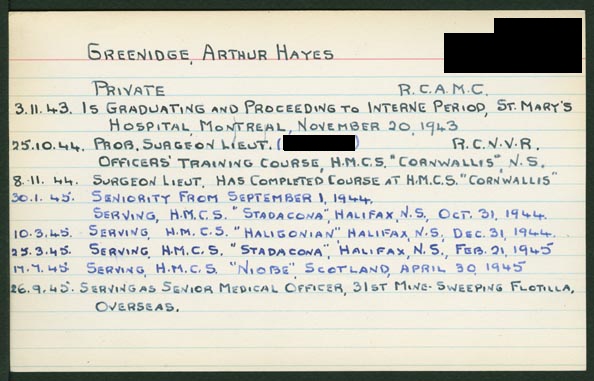 GREENIDGE, ARTHUR HAYES
PRIVATE R.C.A.M.C.
3.11.43. IS GRADUATING AND PROCEEDING TO INTERNE PERIOD, ST. MARY'S
HOSPITAL, MONTREAL, NOVEMBER 20, 1943
25.10.44. PROB. SURGEON LIEUT. ( ) R.C.N.V.R.
OFFICERS' TRAINING COURSE, H.M.C.S. "CORNWALLIS", N.S.
8.11.44. SURGEON LIEUT. HAS COMPLETED COURSE AT H.M.C.S. "CORNWALLIS"
30.1.45. SENIORITY FROM SEPTEMBER 1, 1944.
SERVING, H.M.C.S. "STADACONA", HALIFAX, N.S., OCT. 31, 1944.
10.3.45. SERVING, H.M.C.S. "HALIGONIAN" HALIFAX, N.S., DEC. 31, 1944.
25.3.45. SERVING, H.M.C.S. "STADACONA", HALIFAX, N.S., FEB. 21, 1945
17.7.45. SERVING, H.M.C.S. "NIOBE", SCOTLAND, APRIL 30, 1945
26.9.45. SERVING AS SENIOR MEDICAL OFFICER, 31ST MINE-SWEEPING FLOTILLA,
OVERSEAS.